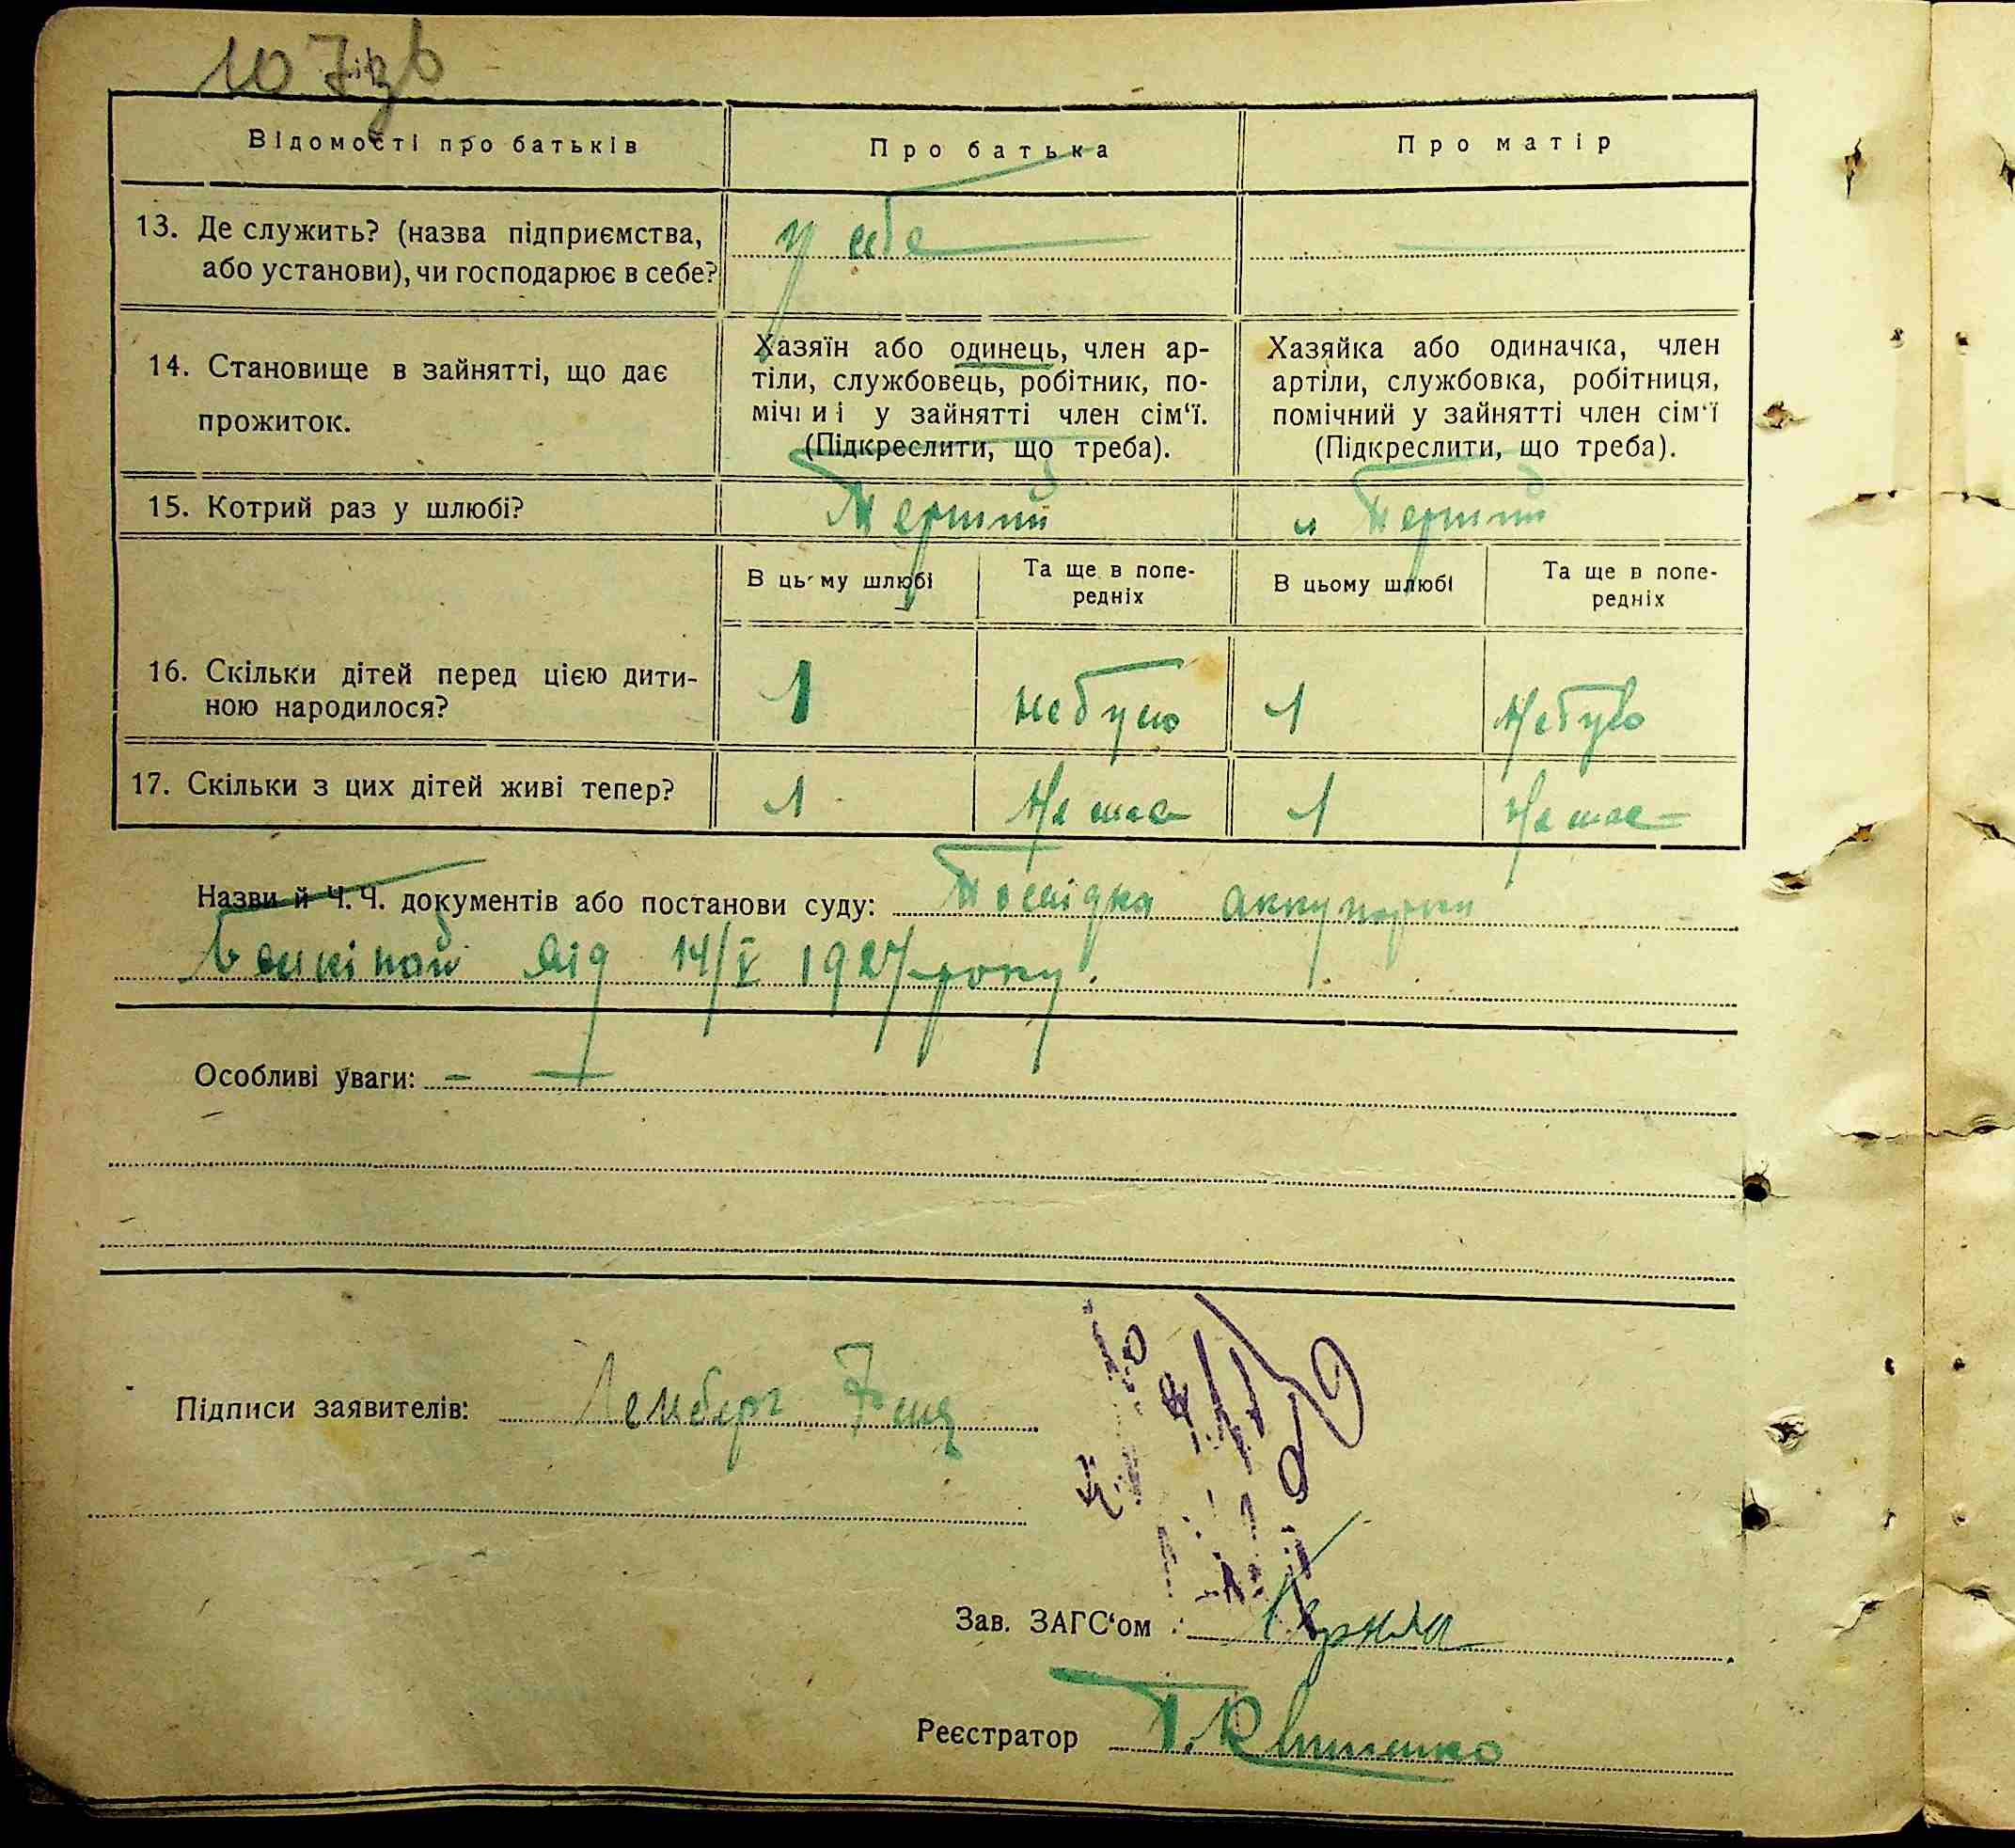 107 зв
Відомості про батьків
Про батька
Про матір
13. Де служить? (назва підприємства,
або установи), чи господарює в себе?
у себе
14. Становище в зайнятті, що дає
прожиток.
Хазяїн або одинець, член ар-
тіли, службовець, робітник, по-
мічниі у зайнятті член сім‘ї.
(Підкреслити, що треба).
Хазяйка або одиначка, член
артіли, службовка, робітниця,
помічний у зайнятті член сім‘ї
(Підкреслити, що треба).
15. Котрий раз у шлюбі?
Перший
Перший
В цьому шлюбі
Та ще в попе-
редніх
В цьому шлюбі
Та ще в попе-
редніх
16. Скільки дітей перед цією дити-
ною народилося?
1
небуло
1
небуло
17. Скільки з цих дітей живі тепер?
1
Немає
1
Немає
Назви й Ч.Ч. документів або постанови суду: Посвідка аккушерки
від 14/V 1927 року.
Особливі уваги: –
Підписи заявителів: Лемберг
Зав. ЗАГС‘ом :
Реєстратор